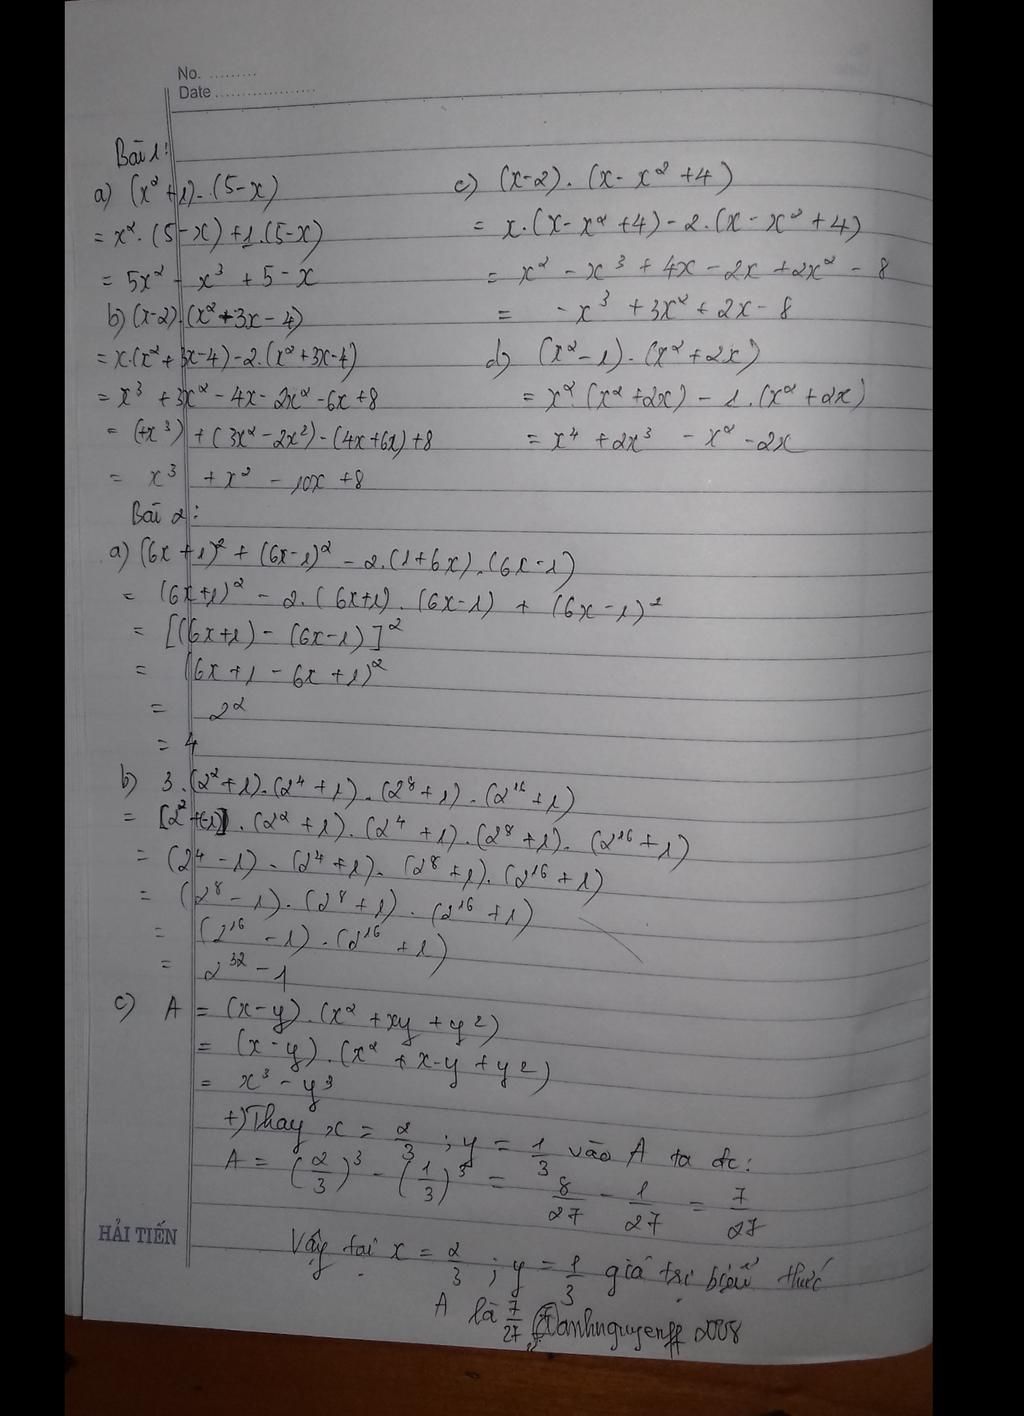 No. .........
Date ..................
Bài 1:
a) (x² + 1).(5-x)
= x².(5-x)+1.(5-x)
= 5x² - x³ + 5 - x
b) (x-2).(x²+3x-4)
= x.(x²+3x-4)-2.(x²+3x-4)
= x³ + 3x² - 4x - 2x² - 6x + 8
= (+x³) + (3x² - 2x²) - (4x+6x) + 8
= x³ + x² - 10x + 8
c) (x-2).(x-x²+4)
= x.(x-x²+4)-2.(x-x²+4)
= x² - x³ + 4x - 2x + 2x² - 8
= -x³ + 3x² + 2x - 8
d) (x²-1).(x²+2x)
= x².(x²+2x) - 1.(x²+2x)
= x⁴ + 2x³ - x² - 2x
Bài 2:
a) (6x+1)² + (6x-1)² - 2.(1+6x).(6x-1)
= (6x+1)² - 2.(6x+1).(6x-1) + (6x-1)²
= [(6x+1) - (6x-1)]²
= (6x+1-6x+1)²
= 2²
= 4
b) 3.(2²+1).(2⁴+1).(2⁸+1).(2¹⁶+1)
= .(2²+1).(2⁴+1).(2⁸+1).(2¹⁶+1)
= (2⁴-1).(2⁴+1).(2⁸+1).(2¹⁶+1)
= (2⁸-1).(2⁸+1).(2¹⁶+1)
= (2¹⁶-1).(2¹⁶+1)
= 2³²-1
c) A = (x-y).(x²+xy+y²)
= (x-y).(x²+x-y+y²)
= x³-y³
+) Thay x = 2/3 ; y = 1/3 vào A ta đc:
A = (2/3)³ - (1/3)³ = 8/27 - 1/27 = 7/27
Vậy tại x = 2/3 ; y = 1/3 giá trị biểu thức
A là 7/27
HẢI TIẾN